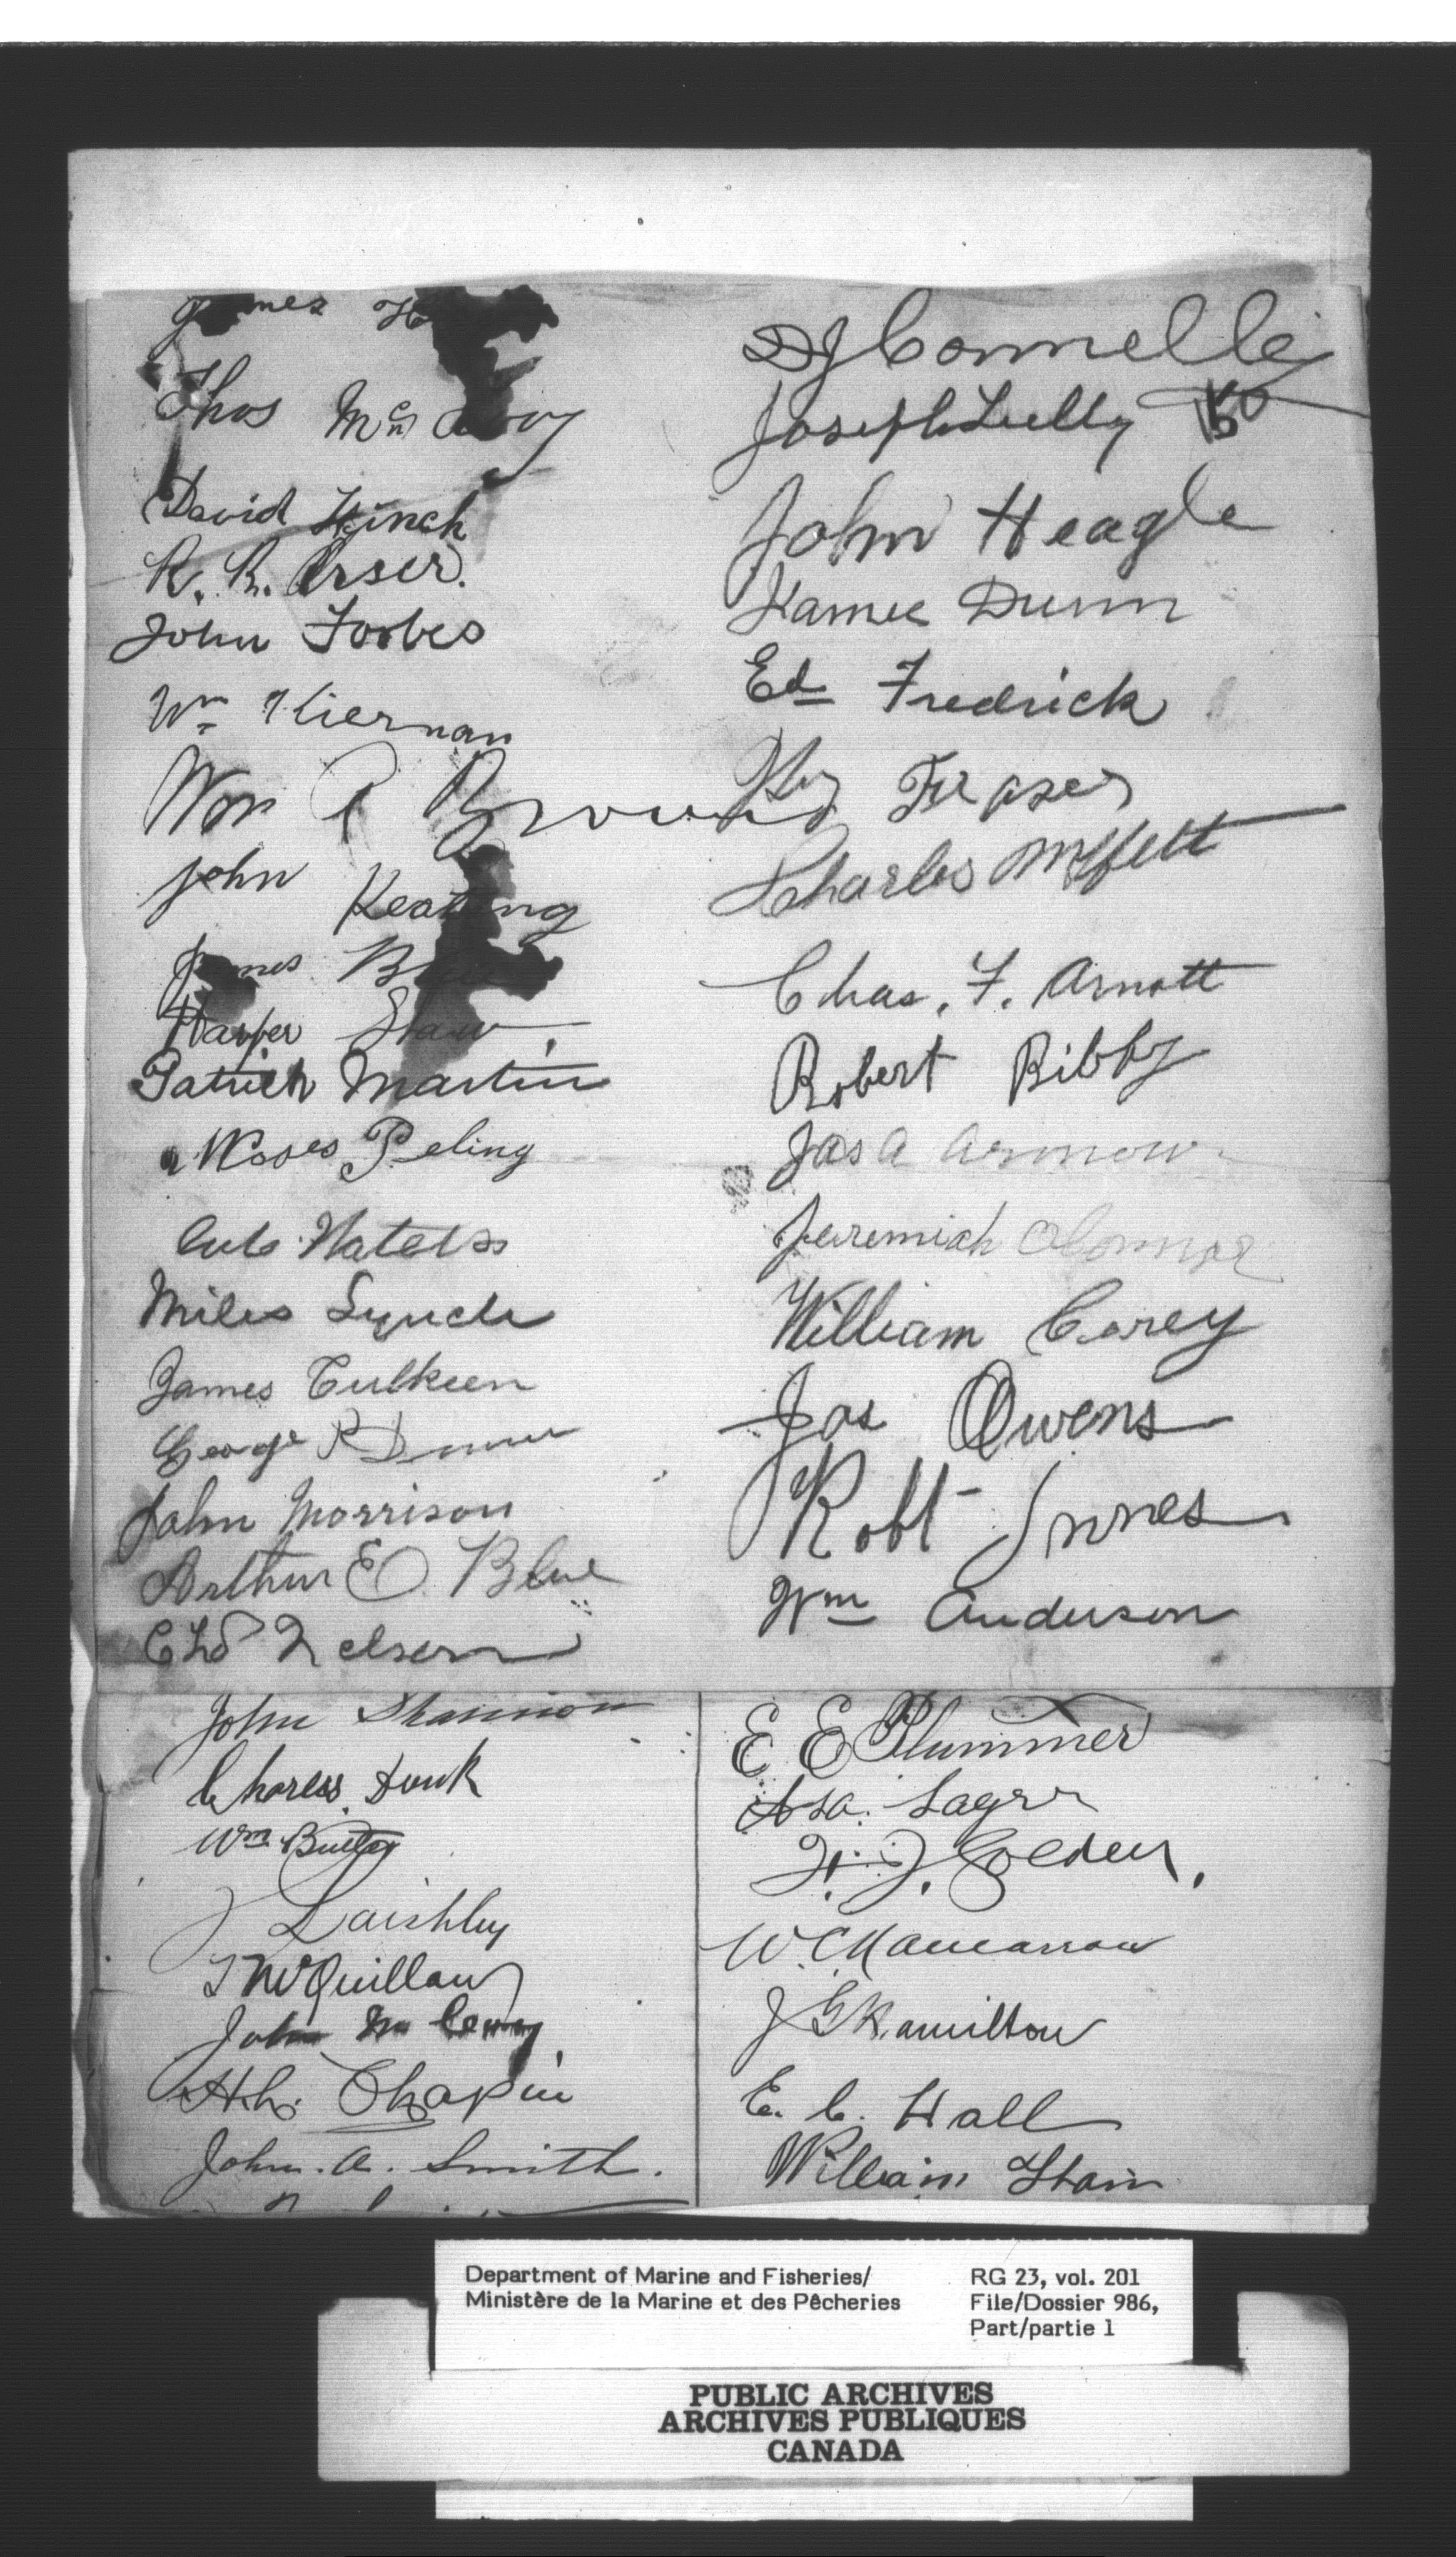 Thos
David Hinch
R. R. Orser.
John Forbes
Wm Kiernan
Wm R Brown
John Keating
James
Harper Shaw
Patrick Martin
Moses Peling
Miles Lynch
James Culkeen
George R
John Morrison
Arthur E O. Blue
Nelson
D J Connelle
Joseph Lully
John Heagle
James Dunn
Ed Fredrick
Hy Fraser
Charles Moffett
Chas. F. Arnott
Robert Bibby
Jas A
Jeremiah OConnor
William Corey
Jas Owens
Robt Innes
Wm Anderson
John Shannon
Charles Houk
Wm Butler
J Laishley
J McQuillan
John
Chapin
John. A. Smith.
E E Plummer
Asa. Sager
F. J. Golden.
W. C.
J G Hamilton
E. C. Hall
William
Department of Marine and Fisheries/
Ministère de la Marine et des Pêcheries
RG 23, vol. 201
File/Dossier 986,
Part/partie 1
PUBLIC ARCHIVES
ARCHIVES PUBLIQUES
CANADA